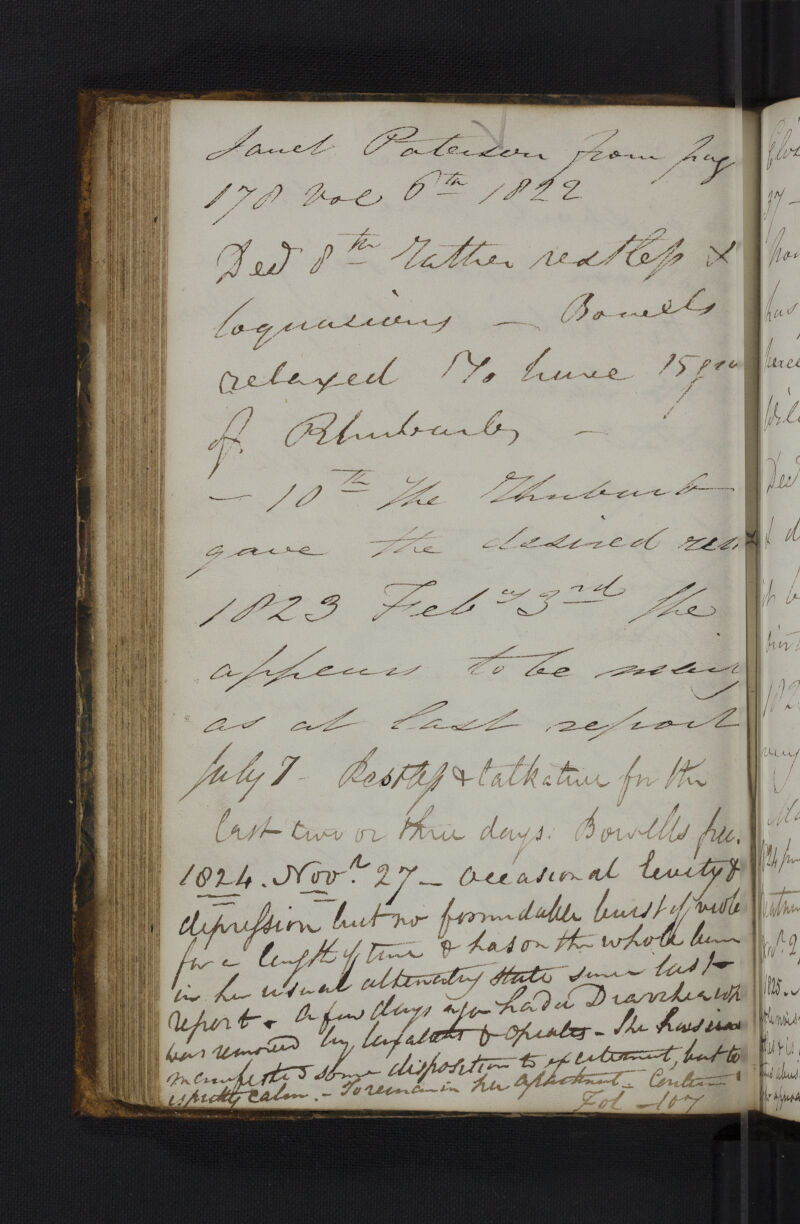 Janet Paterson from pag
178 vol 6th 1822
Decr 8th Rather restless &
loquasious — Bowels
relaxed To have 15 grs
of Rhubarb, —
— 10th The Rhubarb
gave the desired
1823 Feby 3rd She
appears to be
as at last report
July 7 - Restless & talkative for the
last two or three days. Bowells free.
1824. Novr. 27 — occasional levity &
depression but no formidable burst of viole
for a length of time & has on the whole been
in her usual alternating state since last
report. A few days ago had a Diarrhea wh
was removed by laxatives & opiates - She has
manifested some disposition to excitement, but to
is pretty calm. - To remain in her apartment -
Fol - 107